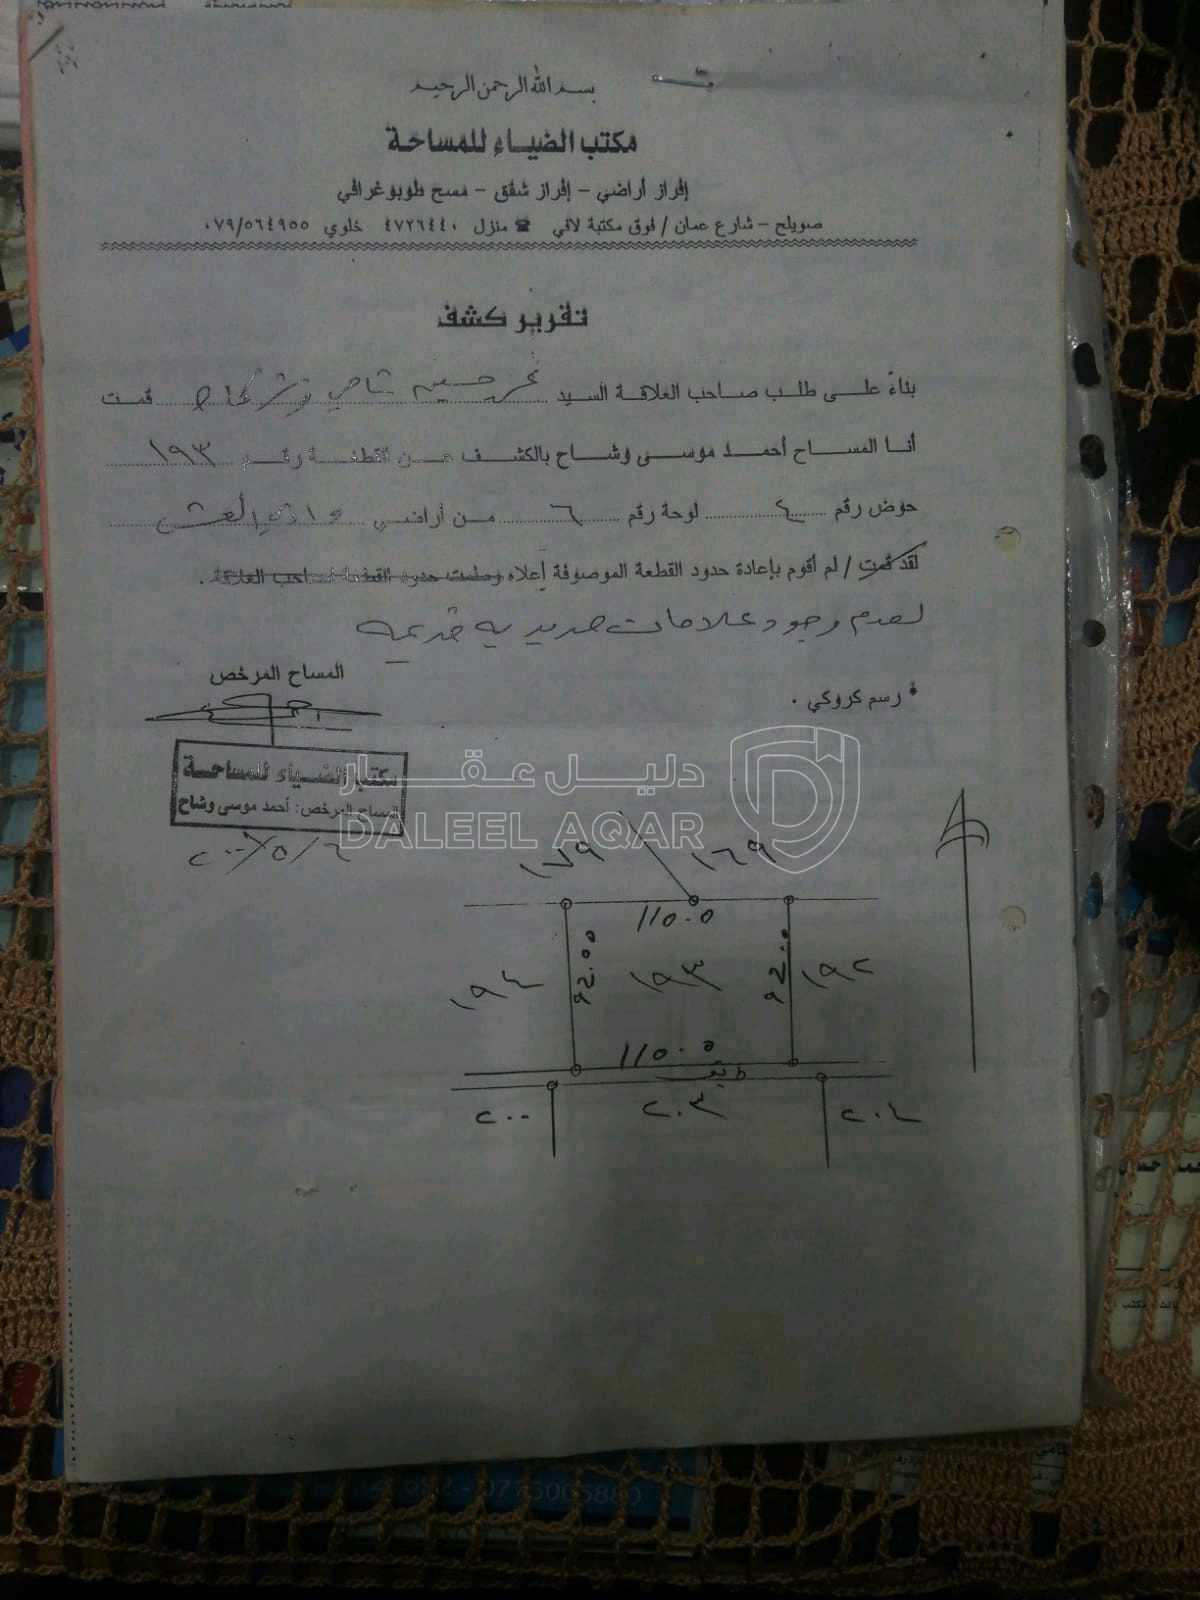 بسم الله الرحمن الرحيم
مكتب الضياء للمساحة
إفراز أراضي - إفراز شقق - مسح طوبوغرافي
صويلح - شارع عمان / فوق مكتبة لافي ☎ منزل ٤٧٢٦٤٤٠ خلوي ٠٧٩/٥٦٤٩٥٥
تقرير كشف
بناءً على طلب صاحب العلاقة السيد قمت
أنا المساح أحمد موسى وشاح بالكشف عن القطعة رقم ١٩٣
حوض رقم ٤ لوحة رقم ٦ من أراضي وادي العش
لقد قمت / لم أقوم بإعادة حدود القطعة الموصوفة أعلاه وسلمت حدود القطعة لصاحب العلاقة .
لعدم وجود علامات حديدية قديمة
المساح المرخص
* رسم كروكي .
مكتب الضياء للمساحة
المساح المرخص: أحمد موسى وشاح
دليل عقار
DALEEL AQAR
١٧٩ ١٦٩
١١٥.٥
١٩٤ ٩٢.٥٥ ١٩٣ ٩٢.٥ ١٩٢
١١٥.٥
طريق
٢٠٠ ٢٠٣ ٢٠٤